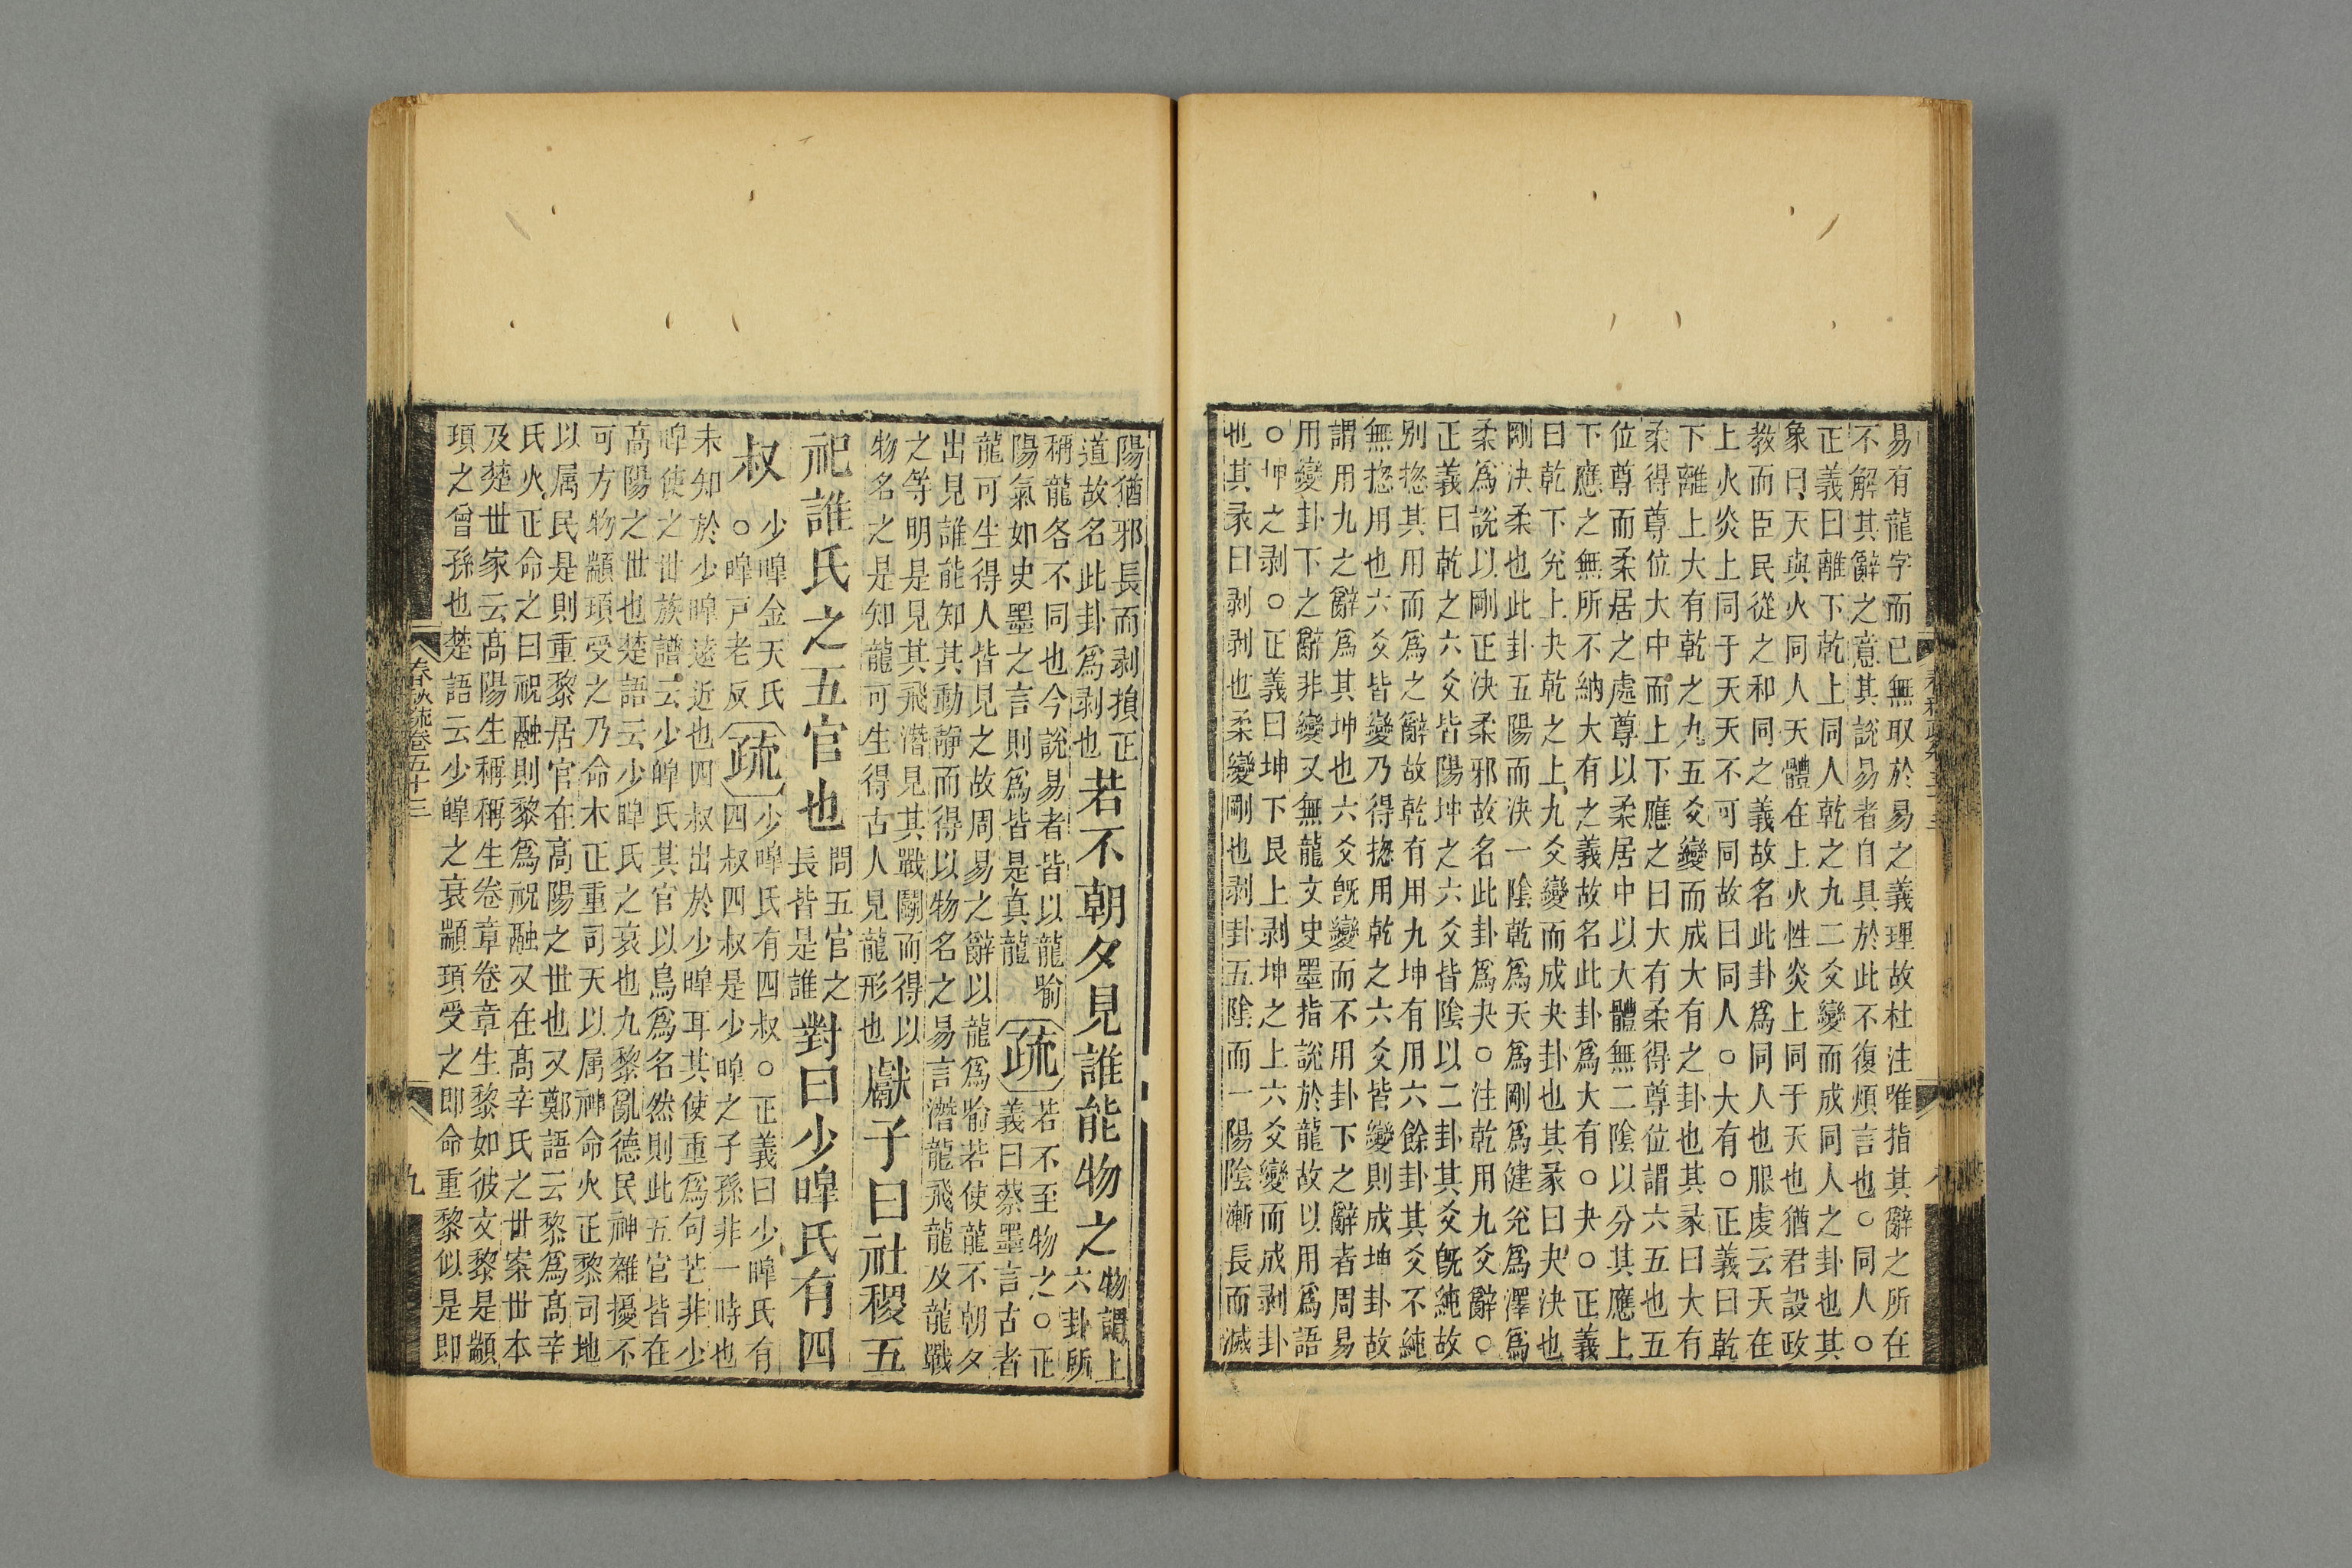 易有龍字而已無取於易之義理故杜注唯指其辭之所在
不解其辭之意其說易者自具於此不復煩言也○同人○
正義曰離下乾上同人乾之九二爻變而成同人之卦也其
象曰天與火同人天體在上火性炎上同于天也猶君設政
教而臣民從之和同之義故名此卦爲同人也服虔云天在
上火炎上同于天天不可同故曰同人○大有○正義曰乾
下離上大有乾之九五爻變而成大有之卦也其彖曰大有
柔得尊位大中而上下應之曰大有柔得尊位謂六五也五
位尊而柔居之處尊以柔居中以大體無二陰以分其應上
下應之無所不納大有之義故名此卦爲大有○夬○正義
曰乾下兌上夬乾之上九爻變而成夬卦也其彖曰夬決也
剛決柔也此卦五陽而決一陰乾爲天爲剛爲健兌爲澤爲
柔爲說以剛正決柔邪故名此卦爲夬○注乾用九爻辭○
正義曰乾之六爻皆陽坤之六爻皆陰以二卦其爻旣純故
別揔其用而爲之辭故乾有用九坤有用六餘卦其爻不純
無揔用也六爻皆變乃得揔用乾之六爻皆變則成坤卦故
謂用九之辭爲其坤也六爻旣變而不用卦下之辭者周易
用變卦下之辭非變又無龍文史墨指說於龍故以用爲語
○坤之剥○正義曰坤下艮上剥坤之上六爻變而成剥卦
也其彖曰剥剥也柔變剛也剥卦五陰而一陽陰漸長而滅
陽猶邪長而剥損正
道故名此卦爲剥也若不朝夕見誰能物之物謂上六卦所
稱龍各不同也今說易者皆以龍喻
陽氣如史墨之言則爲皆是真龍疏若不至物之○正義曰蔡墨言古者
龍可生得人皆見之故周易之辭以龍爲喻若使龍不朝夕
出見誰能知其動靜而得以物名之易言潛龍飛龍及龍戰
之等明是見其飛潛見其戰鬬而得以
物名之是知龍可生得古人見龍形也獻子曰社稷五
祀誰氏之五官也問五官之長皆是誰對曰少皡氏有四
叔少皡金天氏○皡戸老反疏少皡氏有四叔○正義曰少皡氏有四叔四叔是少皡之子孫非一時也
未知於少皡遠近也四叔出於少皡耳其使重爲句芒非少
皡使之世族譜云少皡氏其官以鳥爲名然則此五官皆在
高陽之世也楚語云少皡氏之衰也九黎亂德民神雜擾不
可方物顓頊受之乃命木正重司天以属神命火正黎司地
以属民是則重黎居官在高陽之世也又鄭語云黎爲高辛
氏火正命之曰祝融則黎爲祝融又在高辛氏之世案世本
及楚世家云高陽生稱稱生卷章卷章生黎如彼文黎是顓
頊之曾孫也楚語云少皡之衰顓頊受之即命重黎似是即
春秋疏卷五十三
九